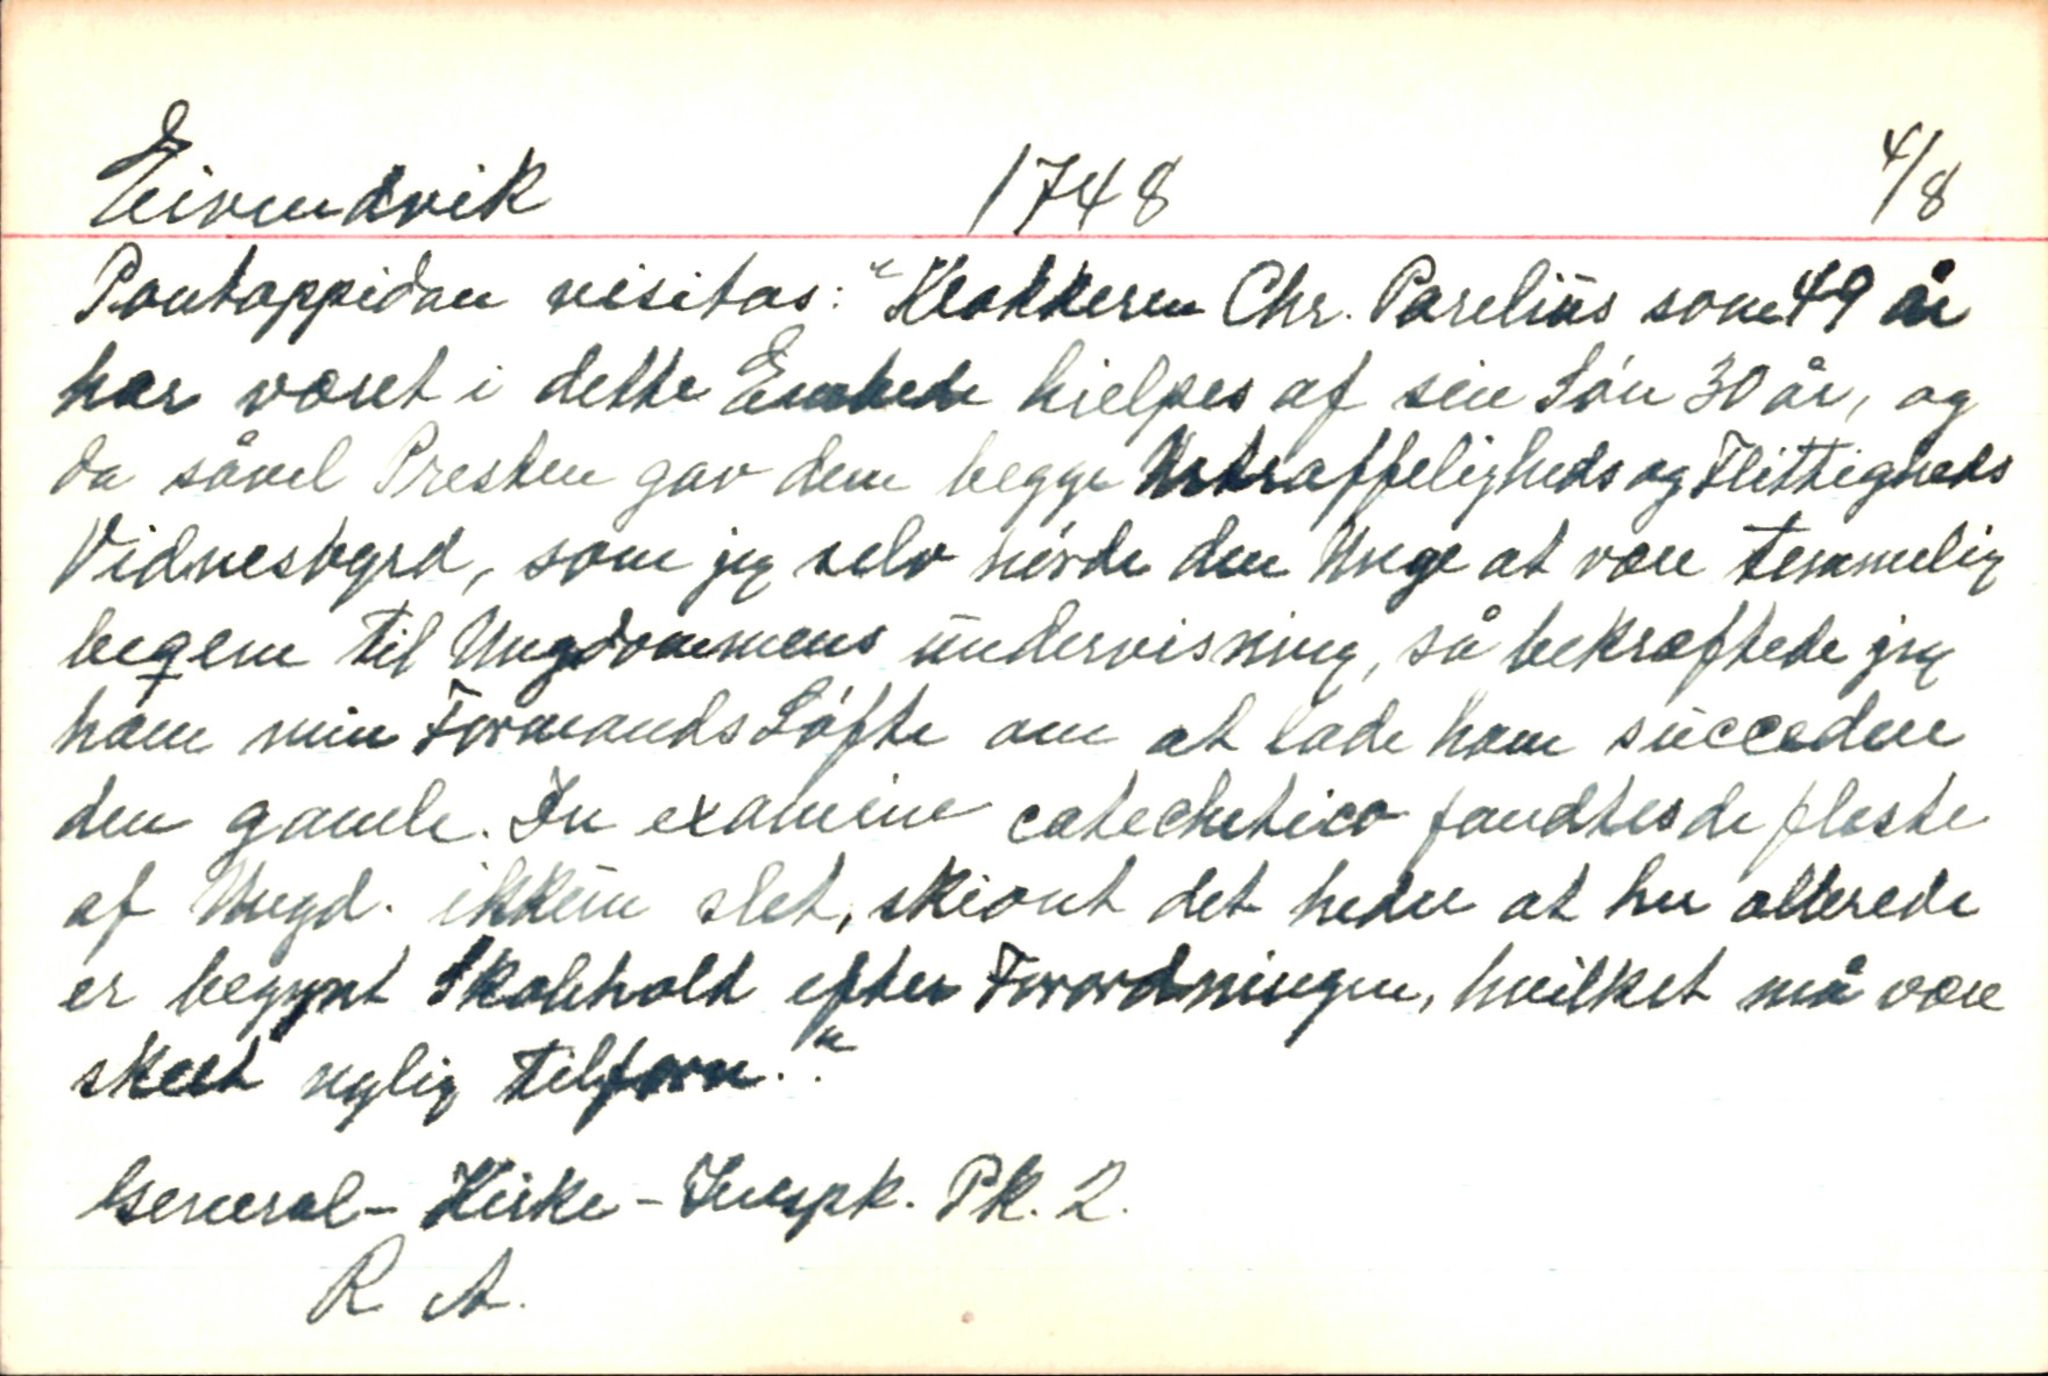 Eivindvik 1748 4/8
Pontoppidan visitas: "Klokkeren Chr. Parelius som 49 år
har været i dette Embede hielpes af sin Søn 30 år, og
da såvel Presten gav dem begge Ustraffeligheds og Flittigheds
Vidnesbyrd, som jeg selv hørde den Unge at være temmelig
beqem til Ungdommens undervisning, så bekræftede jeg
ham min Formands Løfte om at lade ham succedere
den gamle. In examine catechetico fandtes de fleste
af Ungd. ikkun slet, skiønt det heder at her allerede
er begynt Skolehold efter Forordningen, hvilket må være
skeet nylig tilforn.."
General-Kirke-Inspk. Pk. 2.
R A.